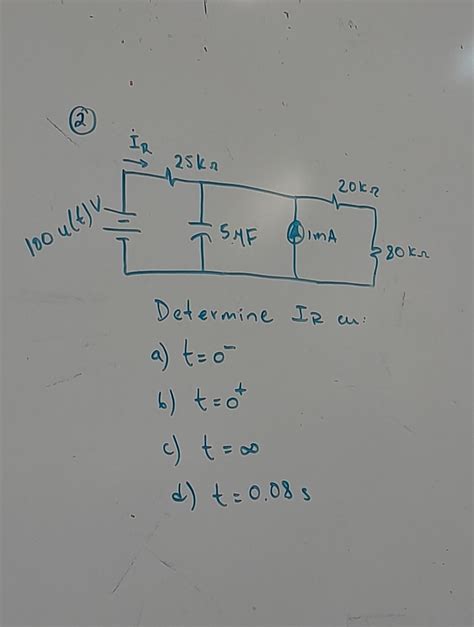 ②
i_R
25kΩ
20kΩ
100u(t)V
5μF
1mA
80kΩ
Determine I_R en:
a) t=0⁻
b) t=0⁺
c) t=∞
d) t=0.08s